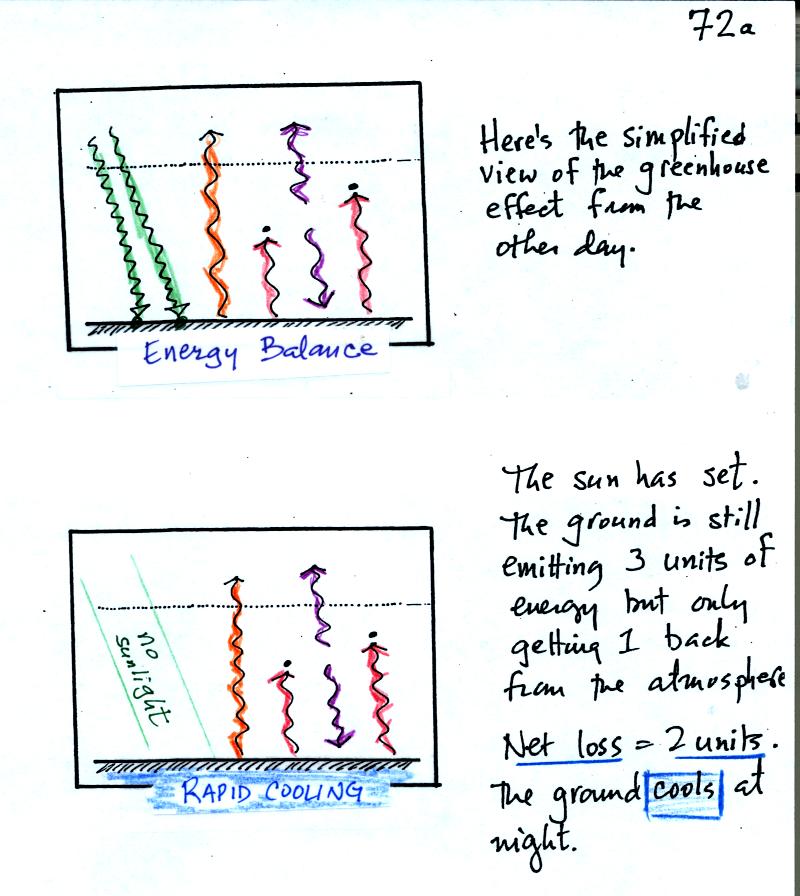 72a
Here's the simplified
view of the greenhouse
effect from the
other day.
Energy Balance
The sun has set.
The ground is still
emitting 3 units of
energy but only
getting 1 back
from the atmosphere
Net loss = 2 units.
The ground cools at
night.
no
sunlight
RAPID COOLING